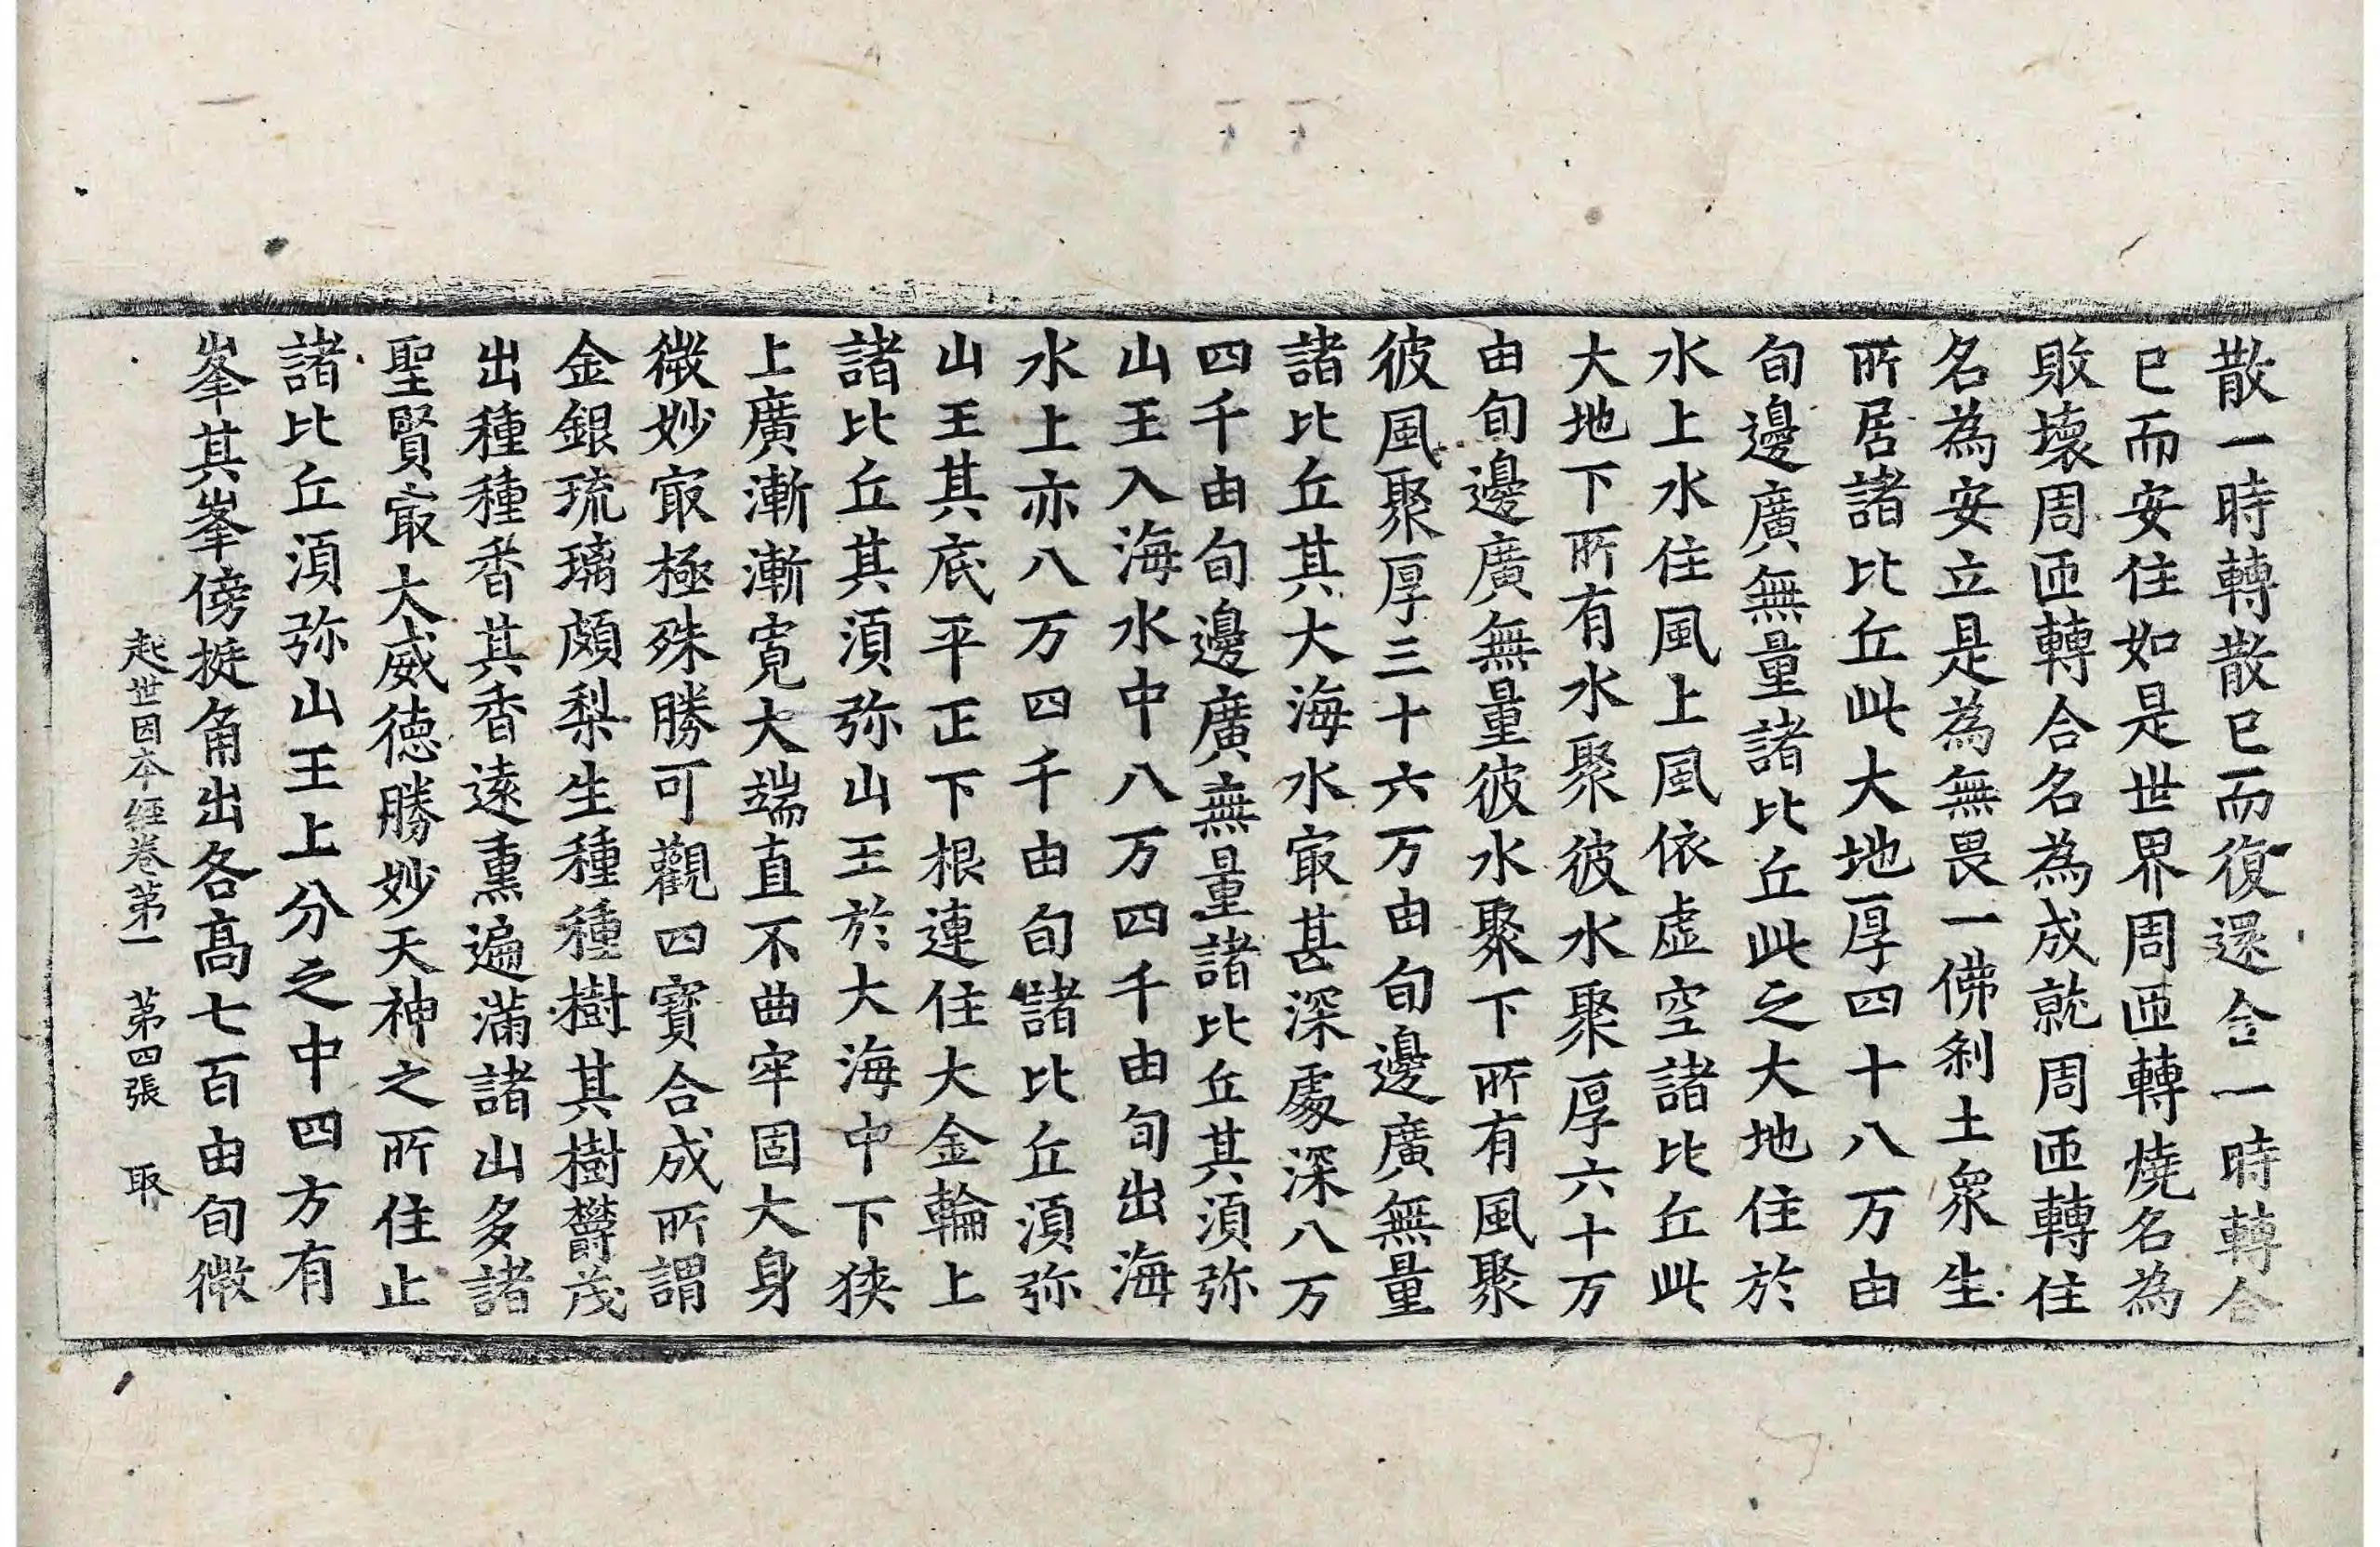 散一時轉散已而復還合一時轉合
已而安住如是世界周匝轉燒名為
敗壞周匝轉合名為成就周匝轉住
名為安立是為無畏一佛剎土衆生
所居諸比丘此大地厚四十八万由
旬邊廣無量諸比丘此之大地住於
水上水住風上風依虛空諸比丘此
大地下所有水聚彼水聚厚六十万
由旬邊廣無量彼水聚下所有風聚
彼風聚厚三十六万由旬邊廣無量
諸比丘其大海水㝡甚深處深八万
四千由旬邊廣無量諸比丘其須弥
山王入海水中八万四千由旬出海
水上亦八万四千由旬諸比丘須弥
山王其底平正下根連住大金輪上
諸比丘其須弥山王於大海中下狹
上廣漸漸寬大端直不曲牢固大身
微妙㝡極殊勝可觀四寶合成所謂
金銀琉璃頗梨生種種樹其樹欝茂
出種種香其香遠熏遍滿諸山多諸
聖賢㝡大威德勝妙天神之所住止
諸比丘須弥山王上分之中四方有
峯其峯傍挺角出各高七百由旬微
起世因本經卷第一 第四張 取